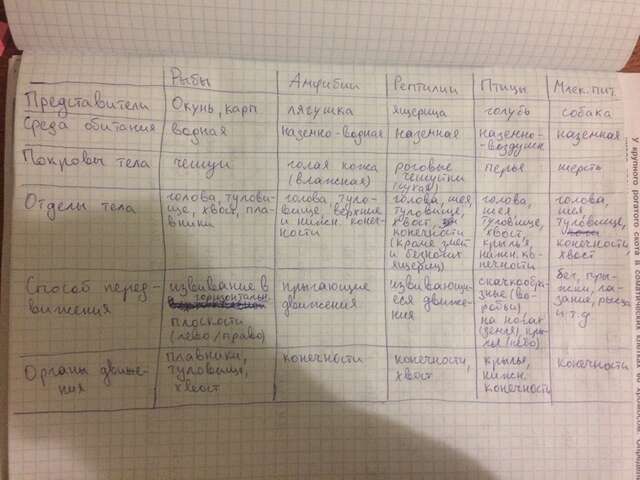 Рыбы Амфибии Рептилии Птицы Млек.пит.
Представители Окунь, карп лягушка ящерица голубь собака
Среда обитания водная наземно-водная наземная наземно-воздушн наземная
Покровы тела чешуи голая кожа (влажная) роговые чешуйки (сухая) перья шерсть
Отделы тела
голова, тулови-
ще, хвост, пла-
вники
голова, туло-
вище, верхние
и нижн. конеч-
ности
голова, шея,
туловище,
хвост,
конечности
(кроме змей
и безногих
ящериц)
голова,
шея,
туловище,
хвост,
крылья,
нижн. ко-
нечности
голова,
шея,
туловище,
конечности,
хвост
Способ перед-
вижения
извивание в
горизонтальн.
плоскости
(лево/право)
прыгающие
движения
извивающи-
еся движе-
ния
скачкообра-
зные (во-
робьи)
на ногах
(земля), кры-
лья (небо)
бег, пры-
жки, ла-
зание, рысца
и т.д
Органы движе-
ния
плавники,
туловище,
хвост
конечности
конечности,
хвост
крылья,
нижн.
конечности
конечности
У крупного рогатого скота в